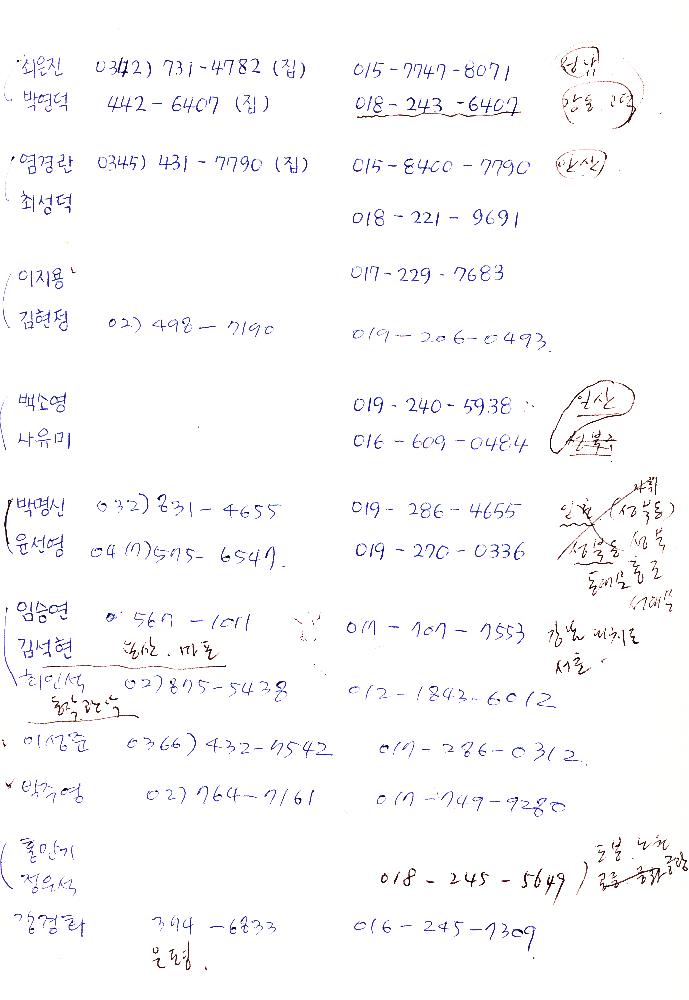 최은진 0342) 731-4782 (집) 015-7747-8071 성남
박연덕 442-6407 (집) 018-243-6407 강동
염경란 0345) 431-7790 (집) 015-8400-7790 안산
최성덕 018-221-9691
이지용 017-229-7683
김현정 02) 498-7190 019-206-0493
백소영 019-240-5938 일산
사유미 016-609-0484 성북구
박명신 032) 831-4655 019-286-4655 (성북동)
윤선영 04(7)575-6547 019-270-0336 성북동 성북
동대문 종로
서대문
임승연 0 567-1011 017-707-7553 강남 대치동
김석현 용산. 마포 서초
최인석 02) 875-5438 012-1843-6012
동작 관악
이성준 0366) 432-7542 017-286-0312
박주영 02) 764-7161 017-749-9280
홍만기 도봉. 노원
정유석 018-245-5649
강경화 394-6833 016-245-7309
은평.